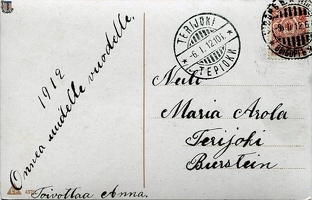 1912
Onnea uudelle vuodelle.
Toivottaa Anna.
TERIJOKI
6.I.12.10I.
ТЕРIОКИ
Neiti
Maria Arola
Terijoki
Burstein